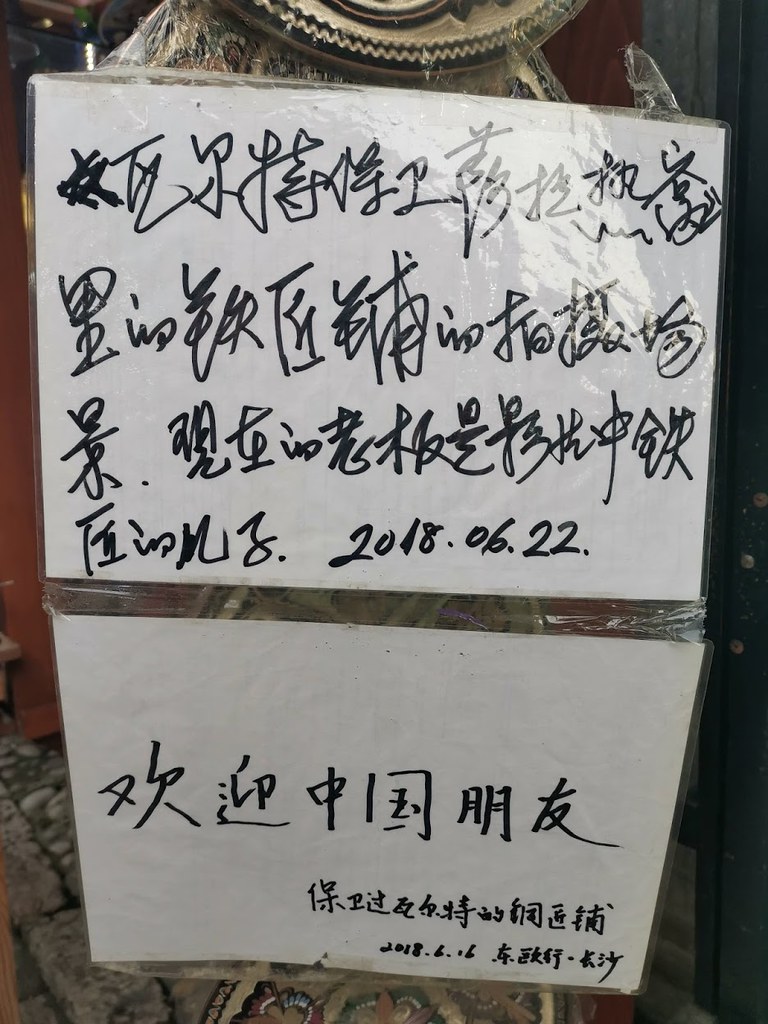 《瓦尔特保卫萨拉热窝》
里的铁匠铺的拍摄场
景.现在的老板是影片中铁
匠的儿子. 2018.06.22.
欢迎中国朋友
保卫过瓦尔特的铜匠铺
2018.6.16 东欧行·长沙